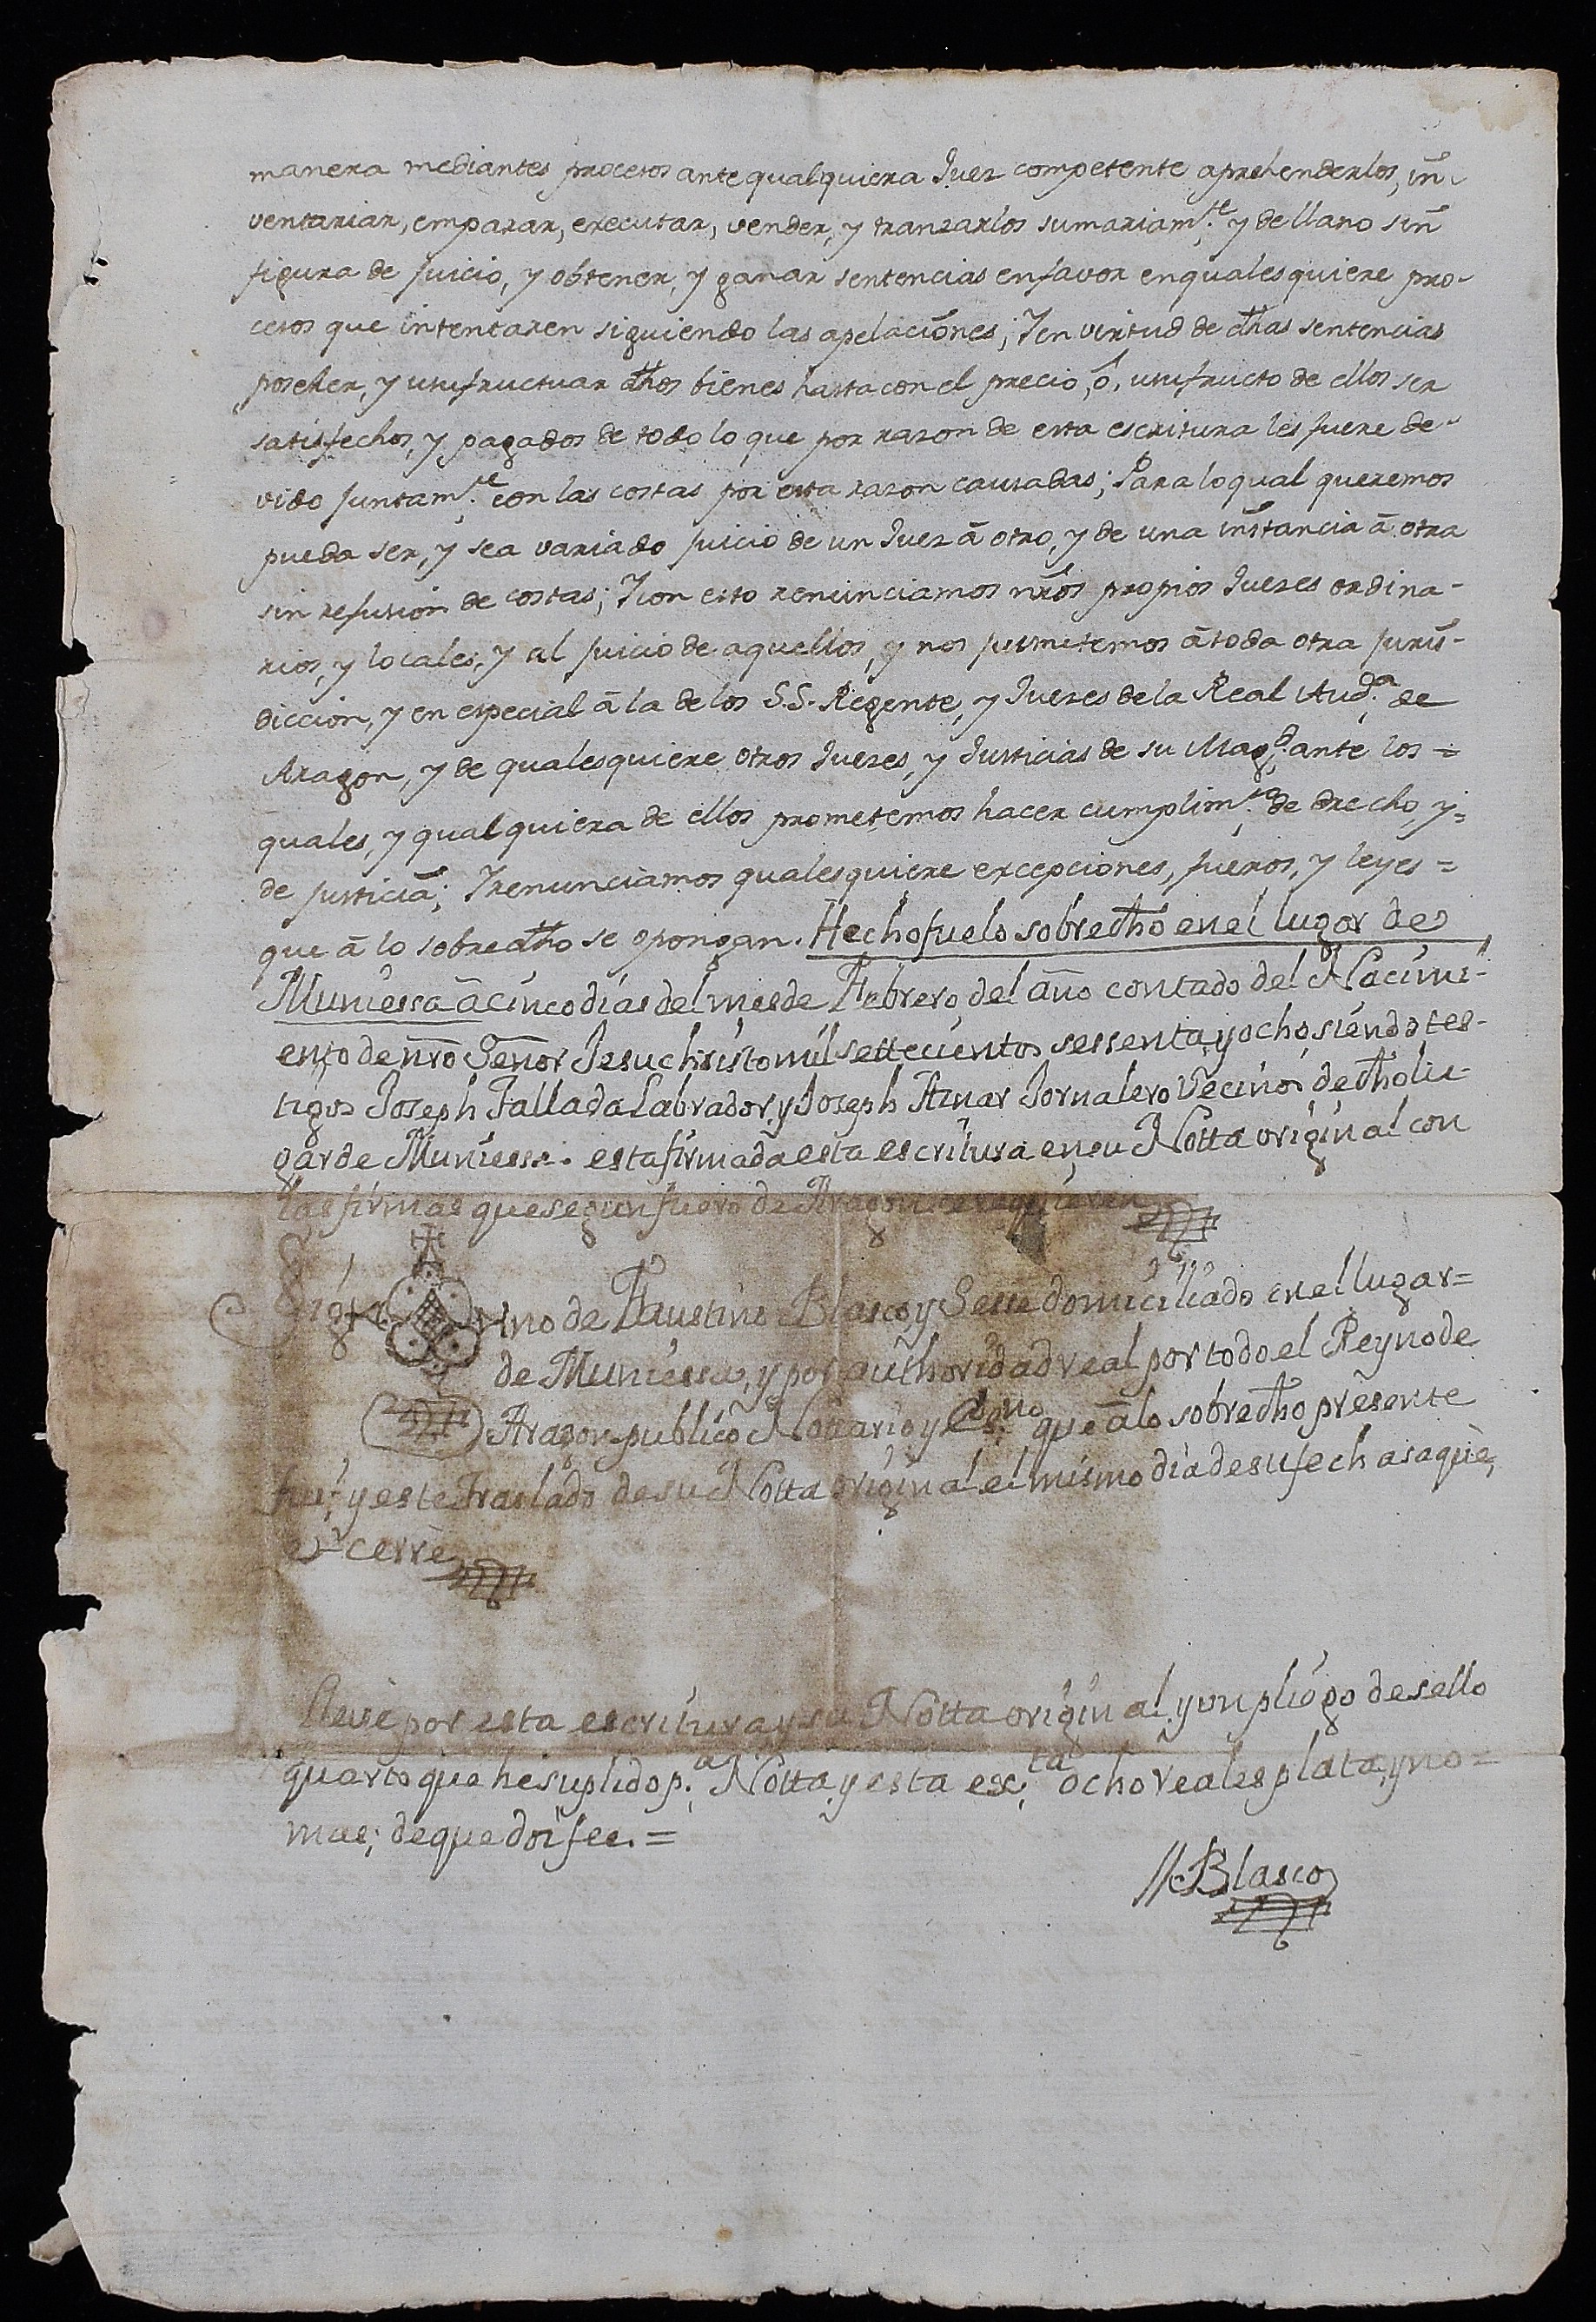 manera mediantes procesos ante qualquiera Juez competente aprehenderlos, in-
ventariar, emparar, executar, vender, y tranzarlos sumariam.te y de llano sin
figura de juicio, y obtener, y ganar sentencias en favor en qualesquiere pro-
cesos que intentaren siguiendo las apelaciones; Y en virtud de dhas sentencias
poseher, y usufructuar dhos bienes hasta con el precio, ô, usufructo de ellos ser
satisfechos, y pagados de todo lo que por razon de esta escritura les fuere de-
vido juntam.te con las costas por esta razon causadas; Para lo qual queremos
pueda ser, y sea variado juicio de un Juez â otro, y de una instancia â otra
sin refusion de costas; Y con esto renunciamos nros propios Juezes ordina-
rios, y locales, y al juicio de aquellos, y nos jusmetemos â toda otra juris-
diccion, y en especial â la de los S.S. Regente, y Juezes de la Real Aud.a de
Aragon, y de qualesquiere otros Juezes, y Justicias de su Mag.d ante los=
quales, y qualquiera de ellos prometemos hacer cumplim.to de drecho, y=
de justicia; Y renunciamos qualesquiere excepciones, fueros, y leyes=
que â lo sobredho se opongan. Hecho fue lo sobredho en el lugar de
Muniessa â cinco dias del mes de Febrero, del año contado del Nacimi-
ento de nro Señor Jesuchristo mil settecientos sessenta, y ocho, siendo tes-
tigos Joseph Fallada Labrador, y Joseph Aznar Jornalero Vecinos de dho lu-
gar de Muniessa. esta firmada esta escritura en su Notta original con
las firmas que segun fuero de Aragon se requieren
Sig no de Faustino Blasco y Sesse domiciliado en el lugar=
de Muniessa, y por authoridad real por todo el Reyno de
Aragon publico Nottario y Es.no que â lo sobredho presente
fui; y este traslado de su Notta original el mismo dia de su fecha saquè,
et cerrè
Llevè por esta escritura y su Notta original, y un pliego de sello
quarto que he suplido p.a Notta, y esta ex.ta ocho reales plata, y no=
mas; de que doi fee.=
Blasco